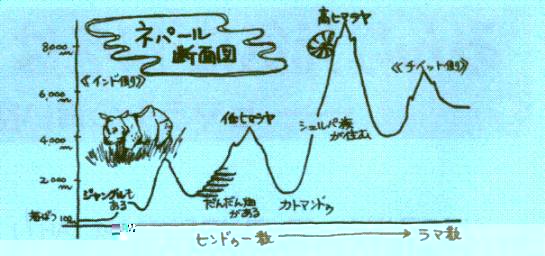 ネパール
断面図
高ヒマラヤ
8,000
m
《インド側》
《チベット側》
6,000
m
低ヒマラヤ
シェルパ族
が住む
4,000
m
2,000
m
ジャングルも
ある
だんだん畑
がある
カトマンドゥ
100
m
ヒンドゥー教
ラマ教